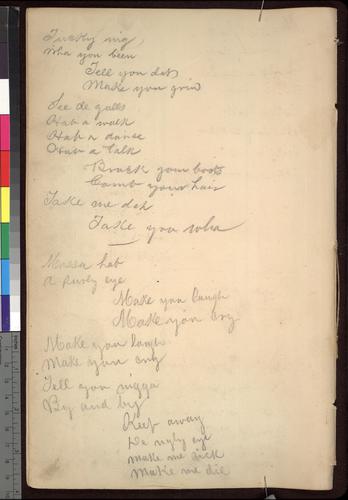 Wha you been
Tell you dat
Make you grin
See de galls
Hab a walk
Hab a dance
Hab a talk
Brush your boots
Comb your hair
Take me dah
Take you wha
Massa hab
A Purty eye
Make you laugh
Make you cry
Make you laugh
Make you cry
Tell you nigga
By and by
Keep away
De ugly eye
Make me sick
Make me die